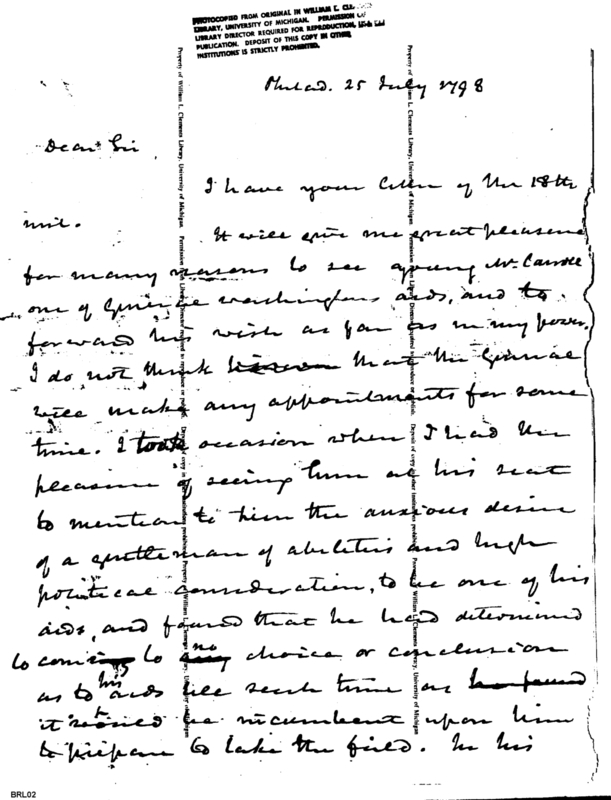 PHOTOCOPIED FROM ORIGINAL IN WILLIAM L. CLE-
LIBRARY, UNIVERSITY OF MICHIGAN. PERMISSION OF
LIBRARY DIRECTOR REQUIRED FOR REPRODUCTION,
PUBLICATION. DEPOSIT OF THIS COPY IN OTHER
INSTITUTIONS IS STRICTLY PROHIBITED.
Philad. 25 July 1798
Dear Sir
I have your letter of the 18th
inst.
It will give me great pleasure
for many reasons to see young Mr. Carroll
one of General Washingtons aids, and to
forward his wish as far as in my power.
I do not think that the General
will make any appointments for some
time. I took occasion when I had the
pleasure of seeing him at his seat
to mention to him the anxious desire
of a gentleman of abilities and high
political consideration, to be one of his
aids, and found that he had determined
to come to no choice or conclusion
as to his aids till such time as
it should be incumbent upon him
to prepare to take the field. In his
Property of William L. Clements Library, University of Michigan.
Property of William L. Clements Library, University of Michigan
BRL02